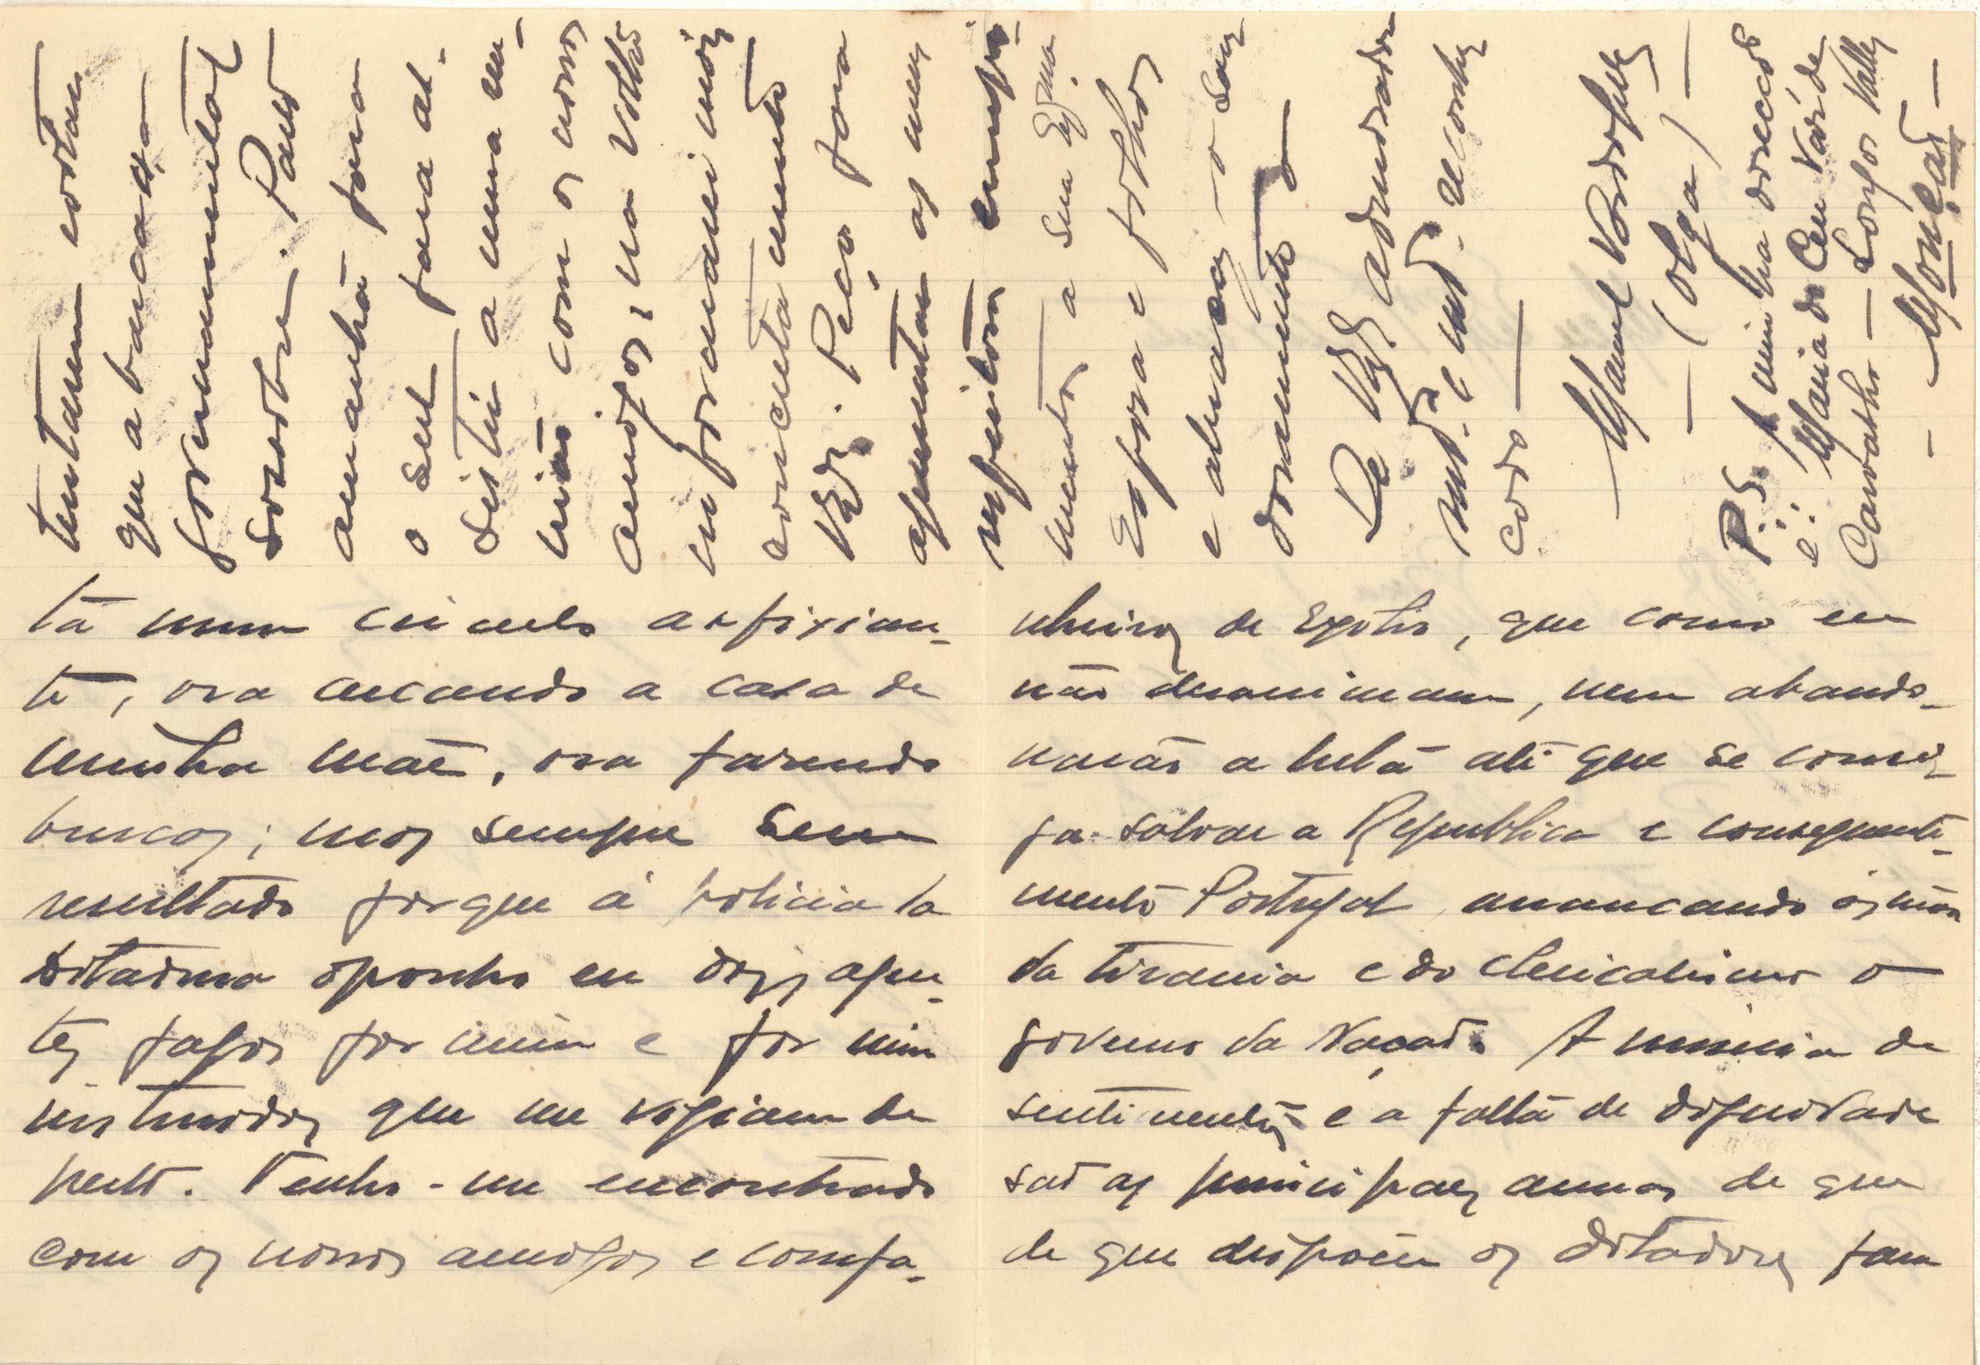 ta num circulo asfixian-
te, ora cercando a casa de
minha mãe, ora fazendo
buscas; mas sempre sem
resultado porque á policia da
Ditadura oponho eu dois agen-
tes pagos por mim e por mim
instruidos que me vigiam de
perto. Tenho-me encontrado
com os nossos amigos e compa-
nheiros de Exilio, que como eu
não desanimam, nem abando-
narão a luta até que se consi-
ga salvar a Republica e consequente-
mente Portugal, arrancando ás mãos
da tirania e do clericalismo o
governo da Nação. A miseria de
sentimentos e a falta de dignidade
são as principaes armas de que
de que dispõem os ditadores para
tentarem evitar
que a bancada
governamental
sossobre. Parto
amanhã para
o sul para as-
sistir a uma reu-
nião com os nossos
amigos, na volta
informarei mais
concretamente
V. Ex.ª. Peço para
apresentar os meus
respeitosos cumpri-
mentos a sua Ex.ma
Esposa e filhos
e abraços do seu
dor e muito
De V. Ex.ª admirador
mt.º e mt.º reconhe-
cido —
Manuel Rodrigues
— (Olga) —
P.S. A minha direcção
é: Maria do Ceu Vaz de
Carvalho — Longos Valles
— Monção —